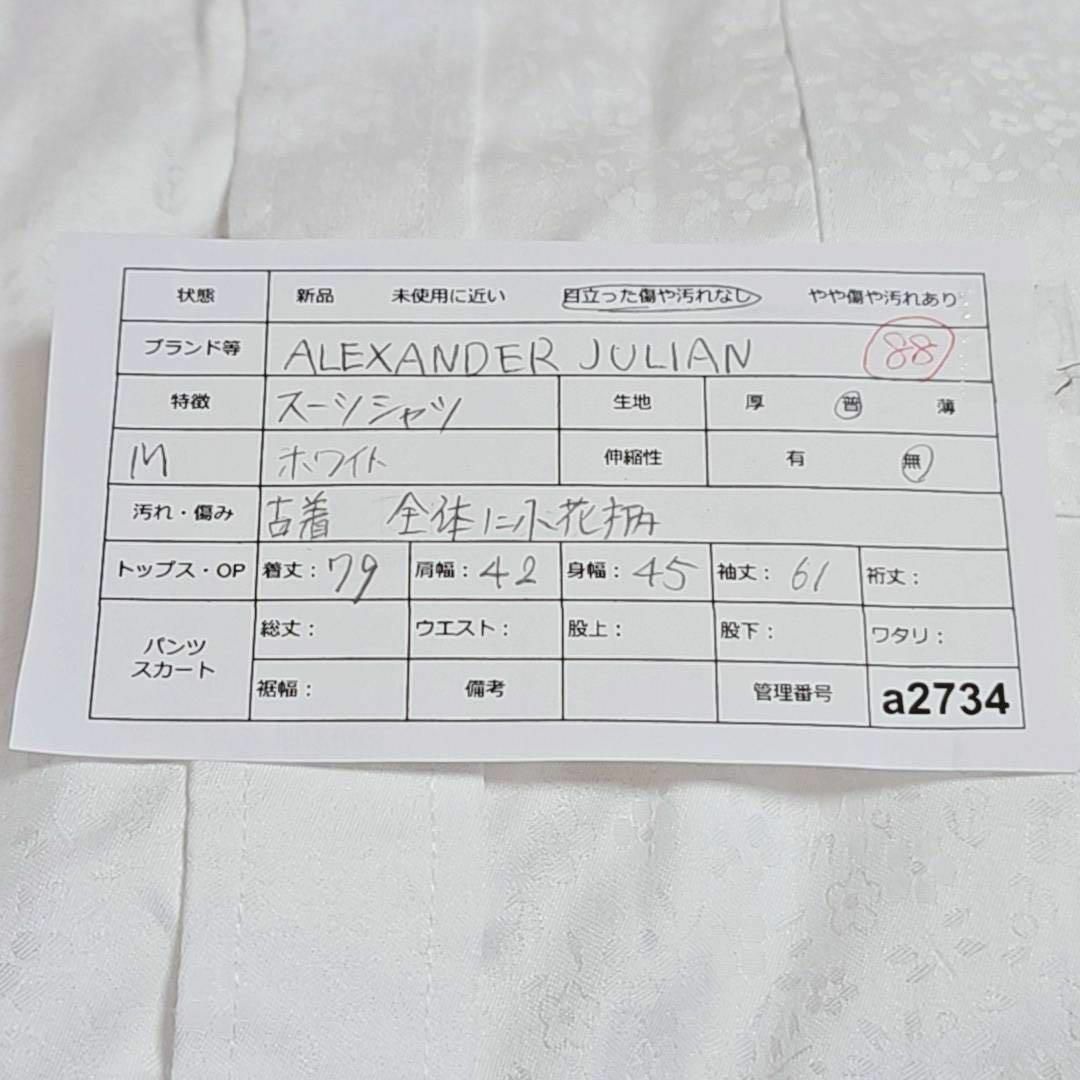 状態 新品 未使用に近い 目立った傷や汚れなし やや傷や汚れあり
ブランド等 ALEXANDER JULIAN 88
特徴 スーツシャツ 生地 厚 普 薄
M ホワイト 伸縮性 有 無
汚れ・傷み 古着 全体に小花柄
トップス・OP 着丈：79 肩幅：42 身幅：45 袖丈：61 裄丈：
パンツ スカート 総丈： ウエスト： 股上： 股下： ワタリ：
裾幅： 備考 管理番号 a2734